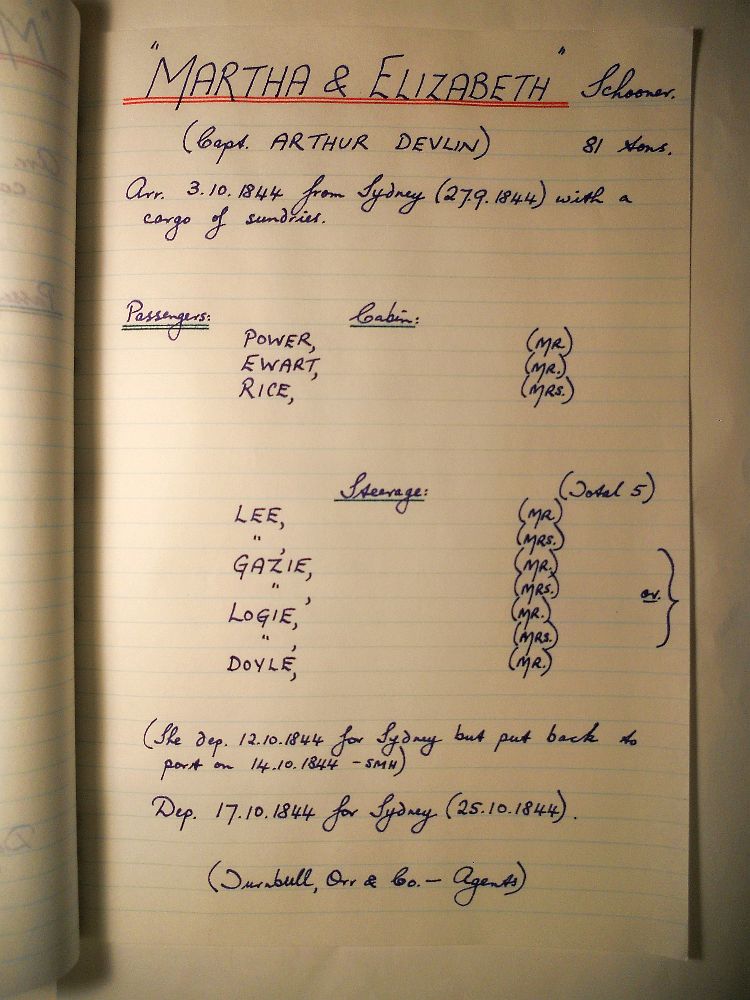 "MARTHA & ELIZABETH" Schooner.
(Capt. ARTHUR DEVLIN) 81 tons.
Arr. 3.10.1844 from Sydney (27.9.1844) with a
cargo of sundries.
Passengers: Cabin:
POWER, (MR)
EWART, (MR.)
RICE, (MRS.)
Steerage: (Total 5)
LEE, (MR.)
", (MRS.)
GAZIE, (MR.)
", (MRS.)
or
LOGIE, (MR.)
", (MRS.)
DOYLE, (MR.)
(She dep. 12.10.1844 for Sydney but put back to
port on 14.10.1844 - SMH)
Dep. 17.10.1844 for Sydney (25.10.1844).
(Turnbull, Orr & Co. — Agents)